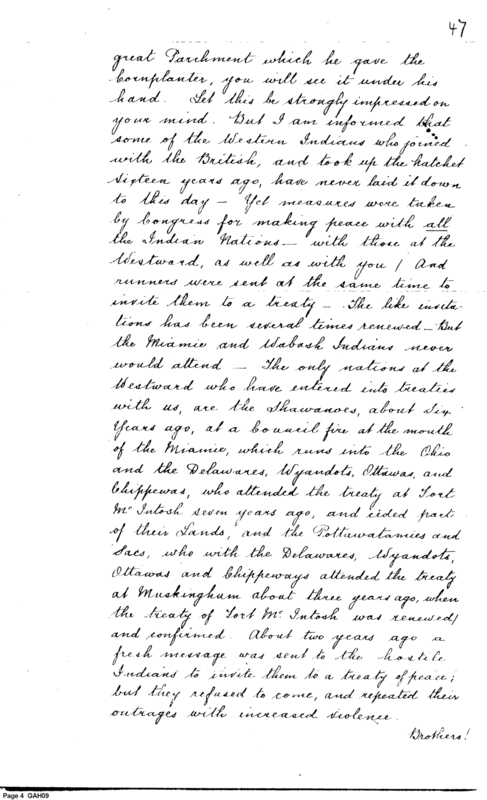 47
great Parchment which he gave the
Cornplanter, you will see it under his
hand. Let this be strongly impressed on
your mind. But I am informed that
some of the Western Indians who joined
with the British, and took up the hatchet
sixteen years ago, have never laid it down
to this day — Yet measures were taken
by Congress for making peace with all
the Indian Nations — with those at the
Westward, as well as with you / And
runners were sent at the same time to
invite them to a treaty — The like invita
tions has been several times renewed — But
the Miamie and Wabash Indians never
would attend — The only nations at the
Westward who have entered into treaties
with us, are the Shawanoes, about Six
Years ago, at a Council fire at the mouth
of the Miamie, which runs into the Ohio
and the Delawares, Wyandots, Ottawas, and
Chippewas, who attended the treaty at Fort
McIntosh seven years ago, and ceded part
of their Lands, and the Pottawatamies and
Sacs, who with the Delawares, Wyandots,
Ottawas and Chippeways attended the treaty
at Muskinghum about three years ago, when
the treaty of Fort Mc Intosh was renewed/
and confirmed. About two years ago a
fresh message was sent to the hostile
Indians to invite them to a treaty of peace;
but they refused to come, and repeated their
outrages with increased violence.
Brothers!
Page 4 GAH09